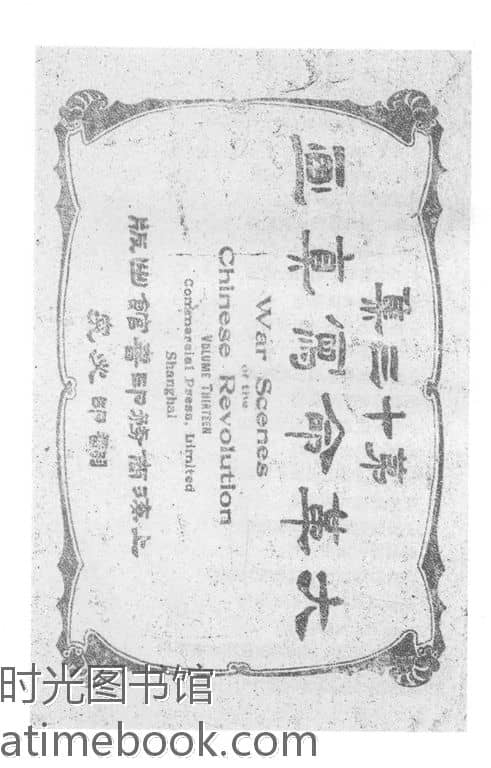 第十三集
大革命寫真画
War Scenes
of the
Chinese Revolution
VOLUME THIRTEEN
Commercial Press, Limited
Shanghai
上海商務印書館出版
翻印必究
时光图书馆
atimebook.com